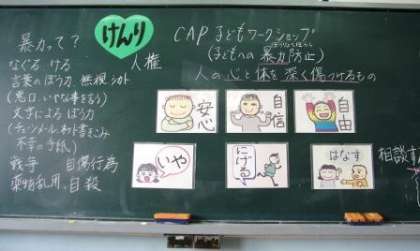 暴力って?
なぐる、ける
言葉のぼう力、無視、シカト
(悪口、いやな事を言う)
文字によるぼう力
(チェンメール、ネット書きこみ
不幸の手紙)
戦争 自傷行為
薬物乱用、自殺
けんり
人権
CAP 子どもワークショップ
(子どもへの暴力防止)
ぼうりょくぼうし
人の心と体を深く傷つけるもの
安心
自信
自由
いや
にげる
はなす
相談す